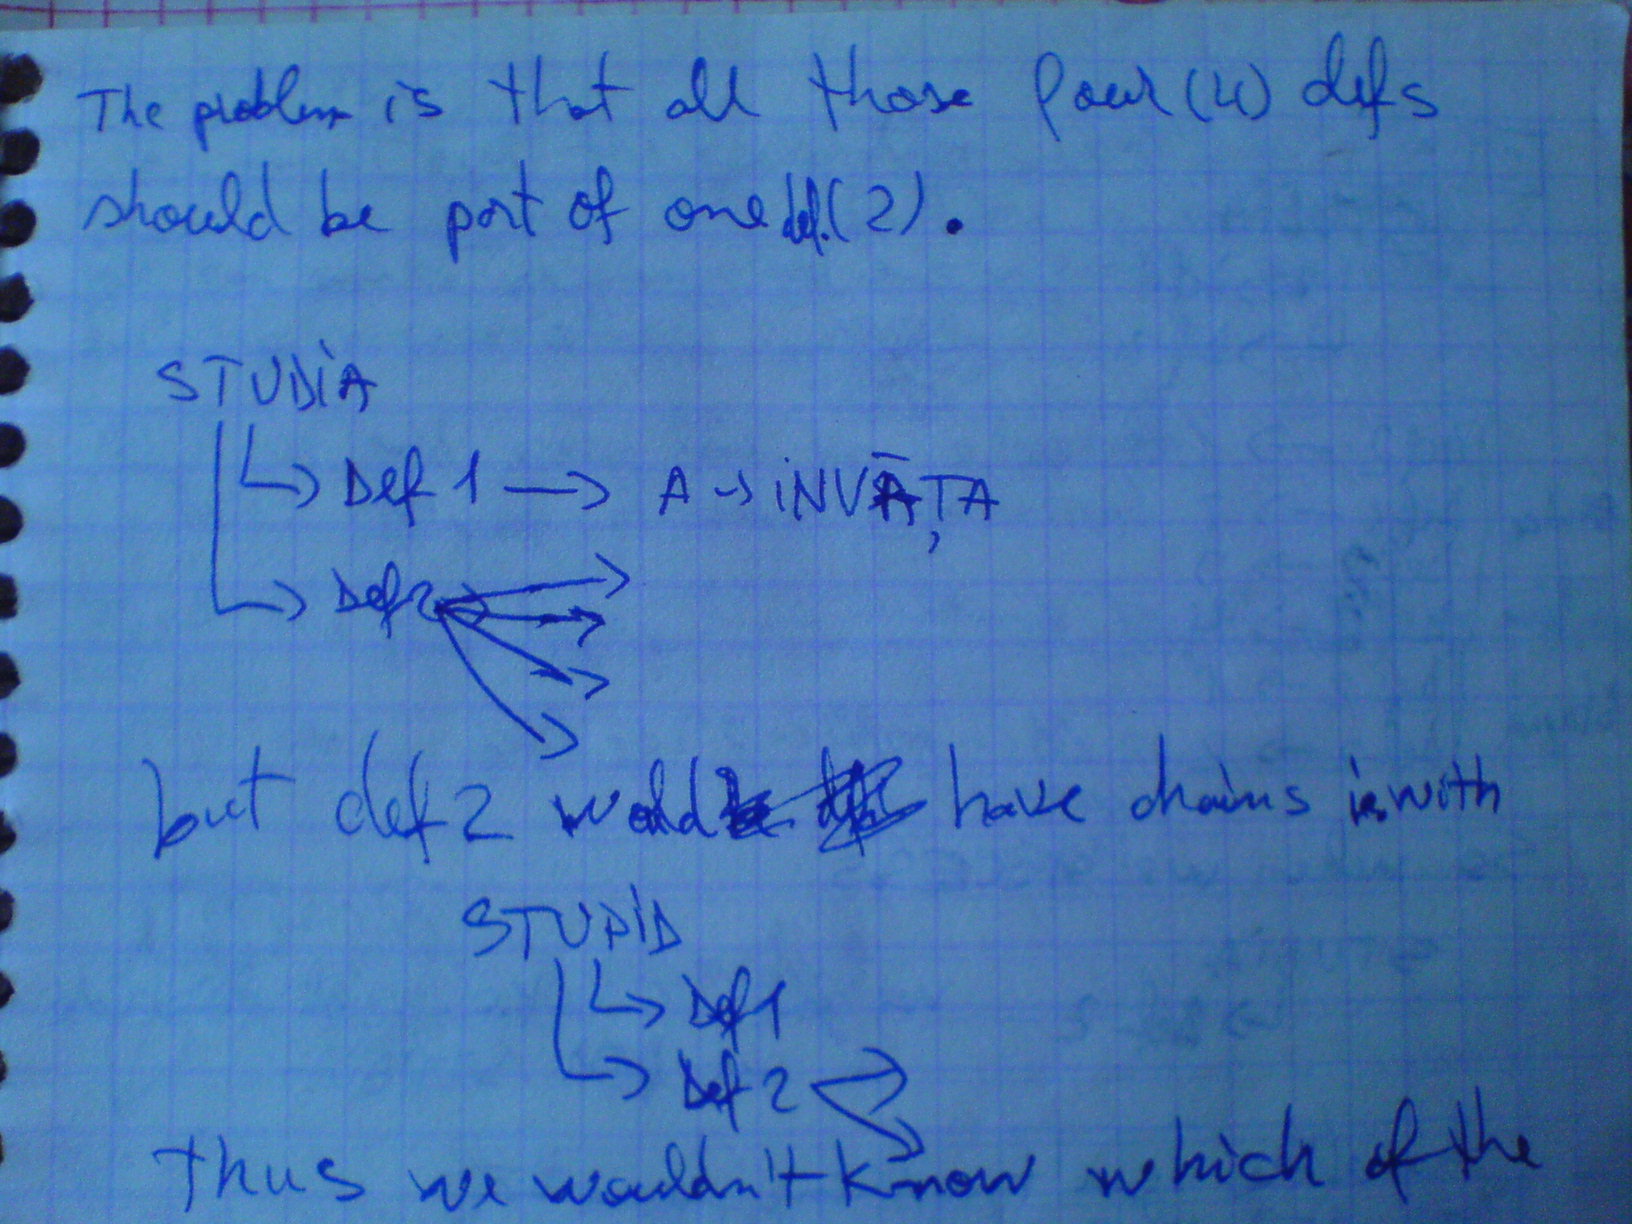 The problem is that all those four (4) defs
should be part of one def. (2).
STUDIA
Def 1 → A → INVĂȚA
Def 2
but def 2 would have chains with
STUDIA
Def 1
Def 2
Thus we wouldn't know which of the